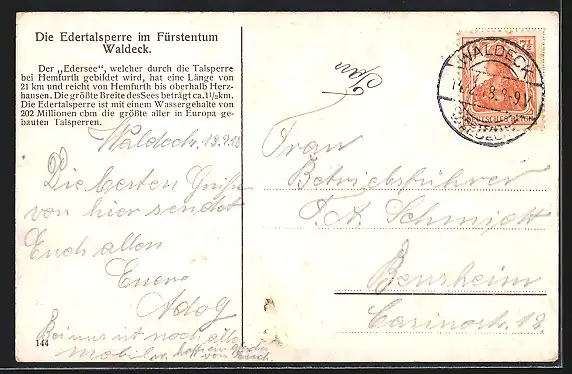 Die Edertalsperre im Fürstentum
Waldeck.
Der „Edersee", welcher durch die Talsperre
bei Hemfurth gebildet wird, hat eine Länge von
21 km und reicht von Hemfurth bis oberhalb Herz-
hausen. Die größte Breite des Sees beträgt ca. 1½ km.
Die Edertalsperre ist mit einem Wassergehalte von
202 Millionen cbm die größte aller in Europa ge-
bauten Talsperren.
Die besten Grüße
von hier sendet
Euch allen
Euer
Adolf
Bei uns ist noch alles
mobil
von Euch
144
WALDECK
DEUTSCHES REICH
7½
Frau
Betriebsführer
F. A. Schmidt
Bensheim
Casinostr. 18